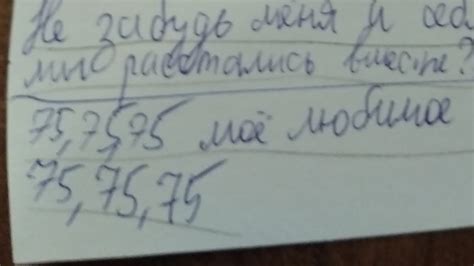 Не забудь меня и
мы расстались вместе?
75,75,75 моё любимое
75,75,75